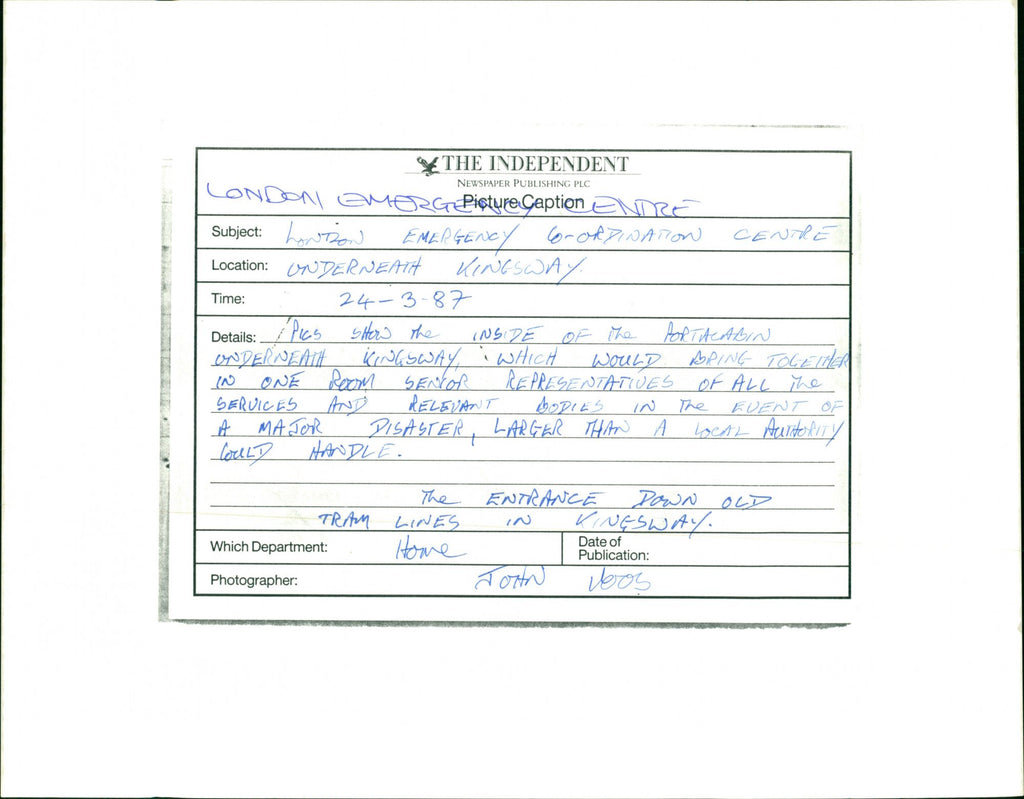 THE INDEPENDENT
NEWSPAPER PUBLISHING PLC
Picture Caption
LONDON EMERGENCY CENTRE
Subject: LONDON EMERGENCY CO-ORDINATION CENTRE
Location: UNDERNEATH KINGSWAY.
Time: 24-3-87
Details: PICS SHOW The INSIDE OF The PORTACABIN
UNDERNEATH KINGSWAY, WHICH WOULD BRING TOGETHER
IN ONE ROOM SENIOR REPRESENTATIVES OF ALL The
SERVICES AND RELEVANT BODIES IN The EVENT OF
A MAJOR DISASTER, LARGER THAN A LOCAL AUTHORITY
COULD HANDLE.
The ENTRANCE DOWN OLD
TRAM LINES IN KINGSWAY.
Which Department: Home
Date of
Publication:
Photographer: JOHN VOOS